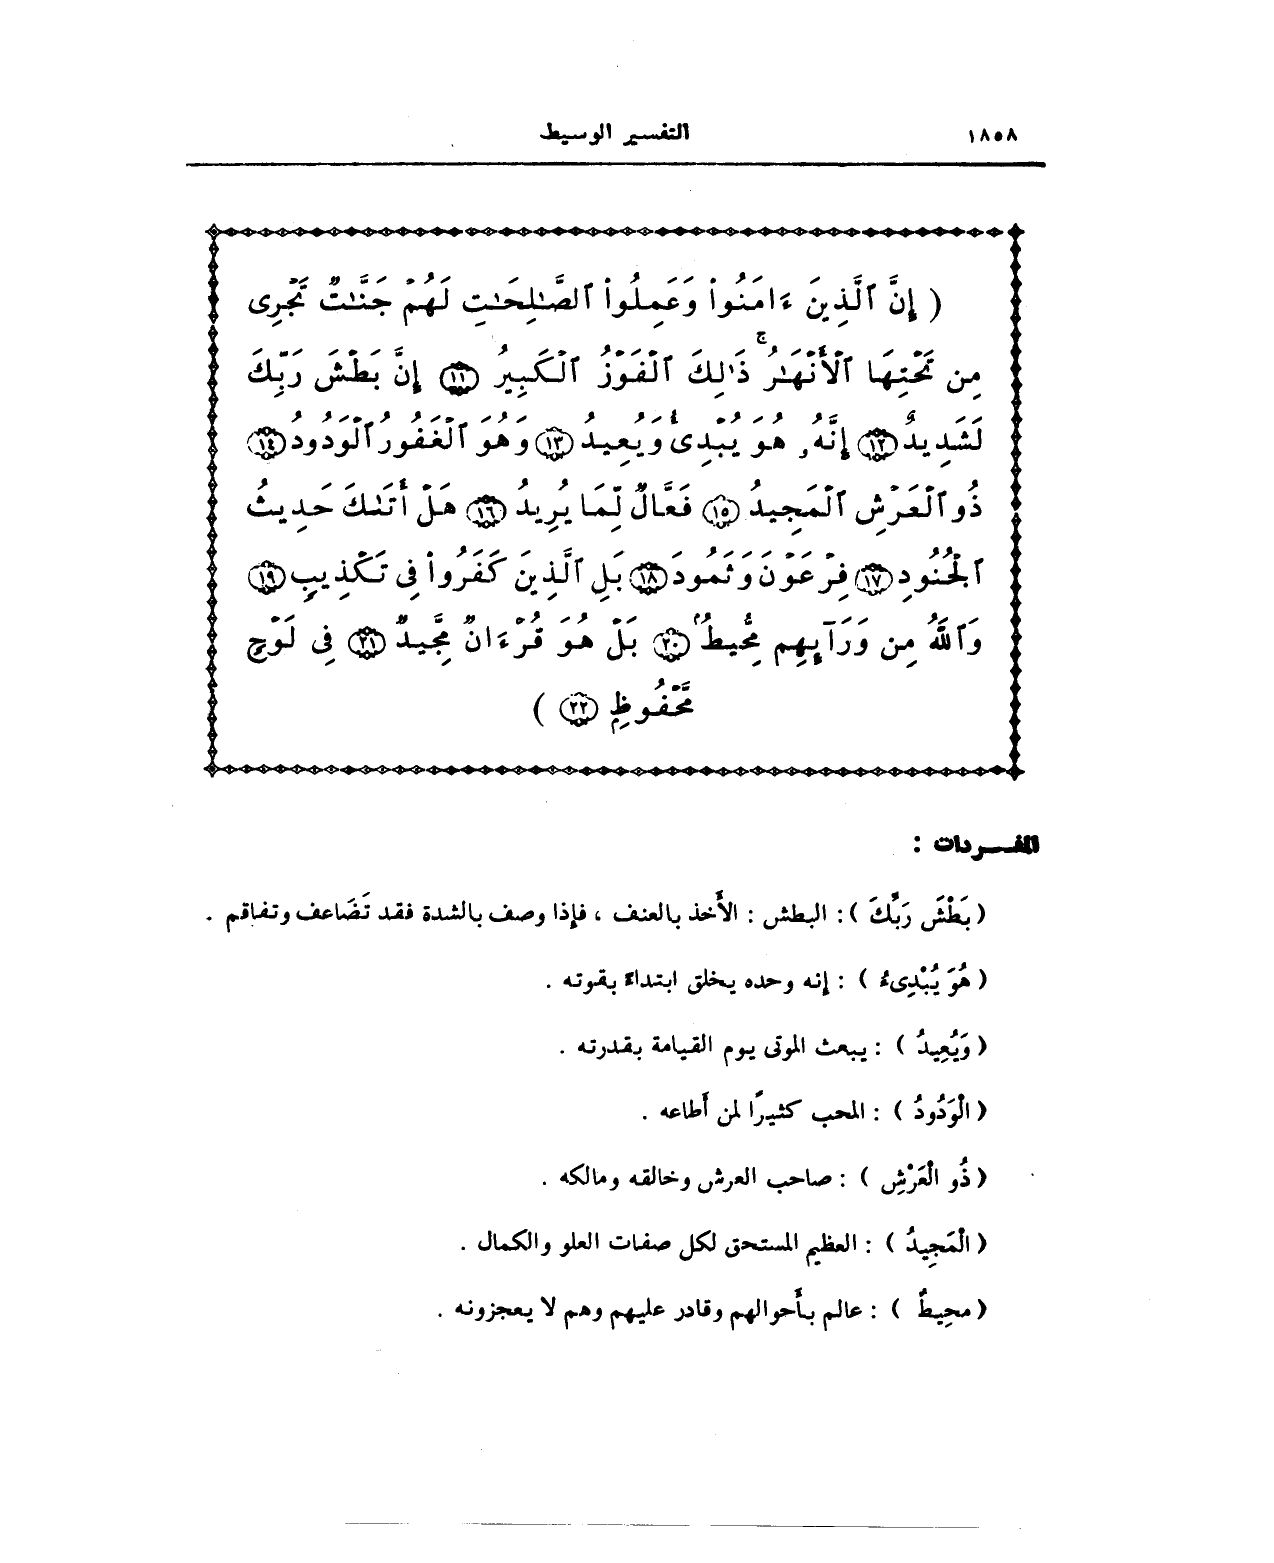 ١٨٥٨ التفسير الوسيط
( إِنَّ ٱلَّذِينَ ءَامَنُوا۟ وَعَمِلُوا۟ ٱلصَّـٰلِحَـٰتِ لَهُمْ جَنَّـٰتٌ تَجْرِى
مِن تَحْتِهَا ٱلْأَنْهَـٰرُ ۚ ذَٰلِكَ ٱلْفَوْزُ ٱلْكَبِيرُ ⑪ إِنَّ بَطْشَ رَبِّكَ
لَشَدِيدٌ ⑫ إِنَّهُۥ هُوَ يُبْدِئُ وَيُعِيدُ ⑬ وَهُوَ ٱلْغَفُورُ ٱلْوَدُودُ ⑭
ذُو ٱلْعَرْشِ ٱلْمَجِيدُ ⑮ فَعَّالٌ لِّمَا يُرِيدُ ⑯ هَلْ أَتَىٰكَ حَدِيثُ
ٱلْجُنُودِ ⑰ فِرْعَوْنَ وَثَمُودَ ⑱ بَلِ ٱلَّذِينَ كَفَرُوا۟ فِى تَكْذِيبٍ ⑲
وَٱللَّهُ مِن وَرَآئِهِم مُّحِيطٌۢ ⑳ بَلْ هُوَ قُرْءَانٌ مَّجِيدٌ ㉑ فِى لَوْحٍ
مَّحْفُوظٍۭ ㉒ )
المفـــردات :
( بَطْشَ رَبِّكَ ) : البطش : الأَخذ بالعنف ، فإذا وصف بالشدة فقد تَضَاعف وتفاقم .
( هُوَ يُبْدِىءُ ) : إنه وحده يخلق ابتداءً بقوته .
( وَيُعِيدُ ) : يبعث الموتى يوم القيامة بقدرته .
( الْوَدُودُ ) : المحب كثيرًا لمن أَطاعه .
( ذُو الْعَرْشِ ) : صاحب العرش وخالقه ومالكه .
( الْمَجِيدُ ) : العظيم المستحق لكل صفات العلو والكمال .
( محِيطٌ ) : عالم بأَحوالهم وقادر عليهم وهم لا يعجزونه .